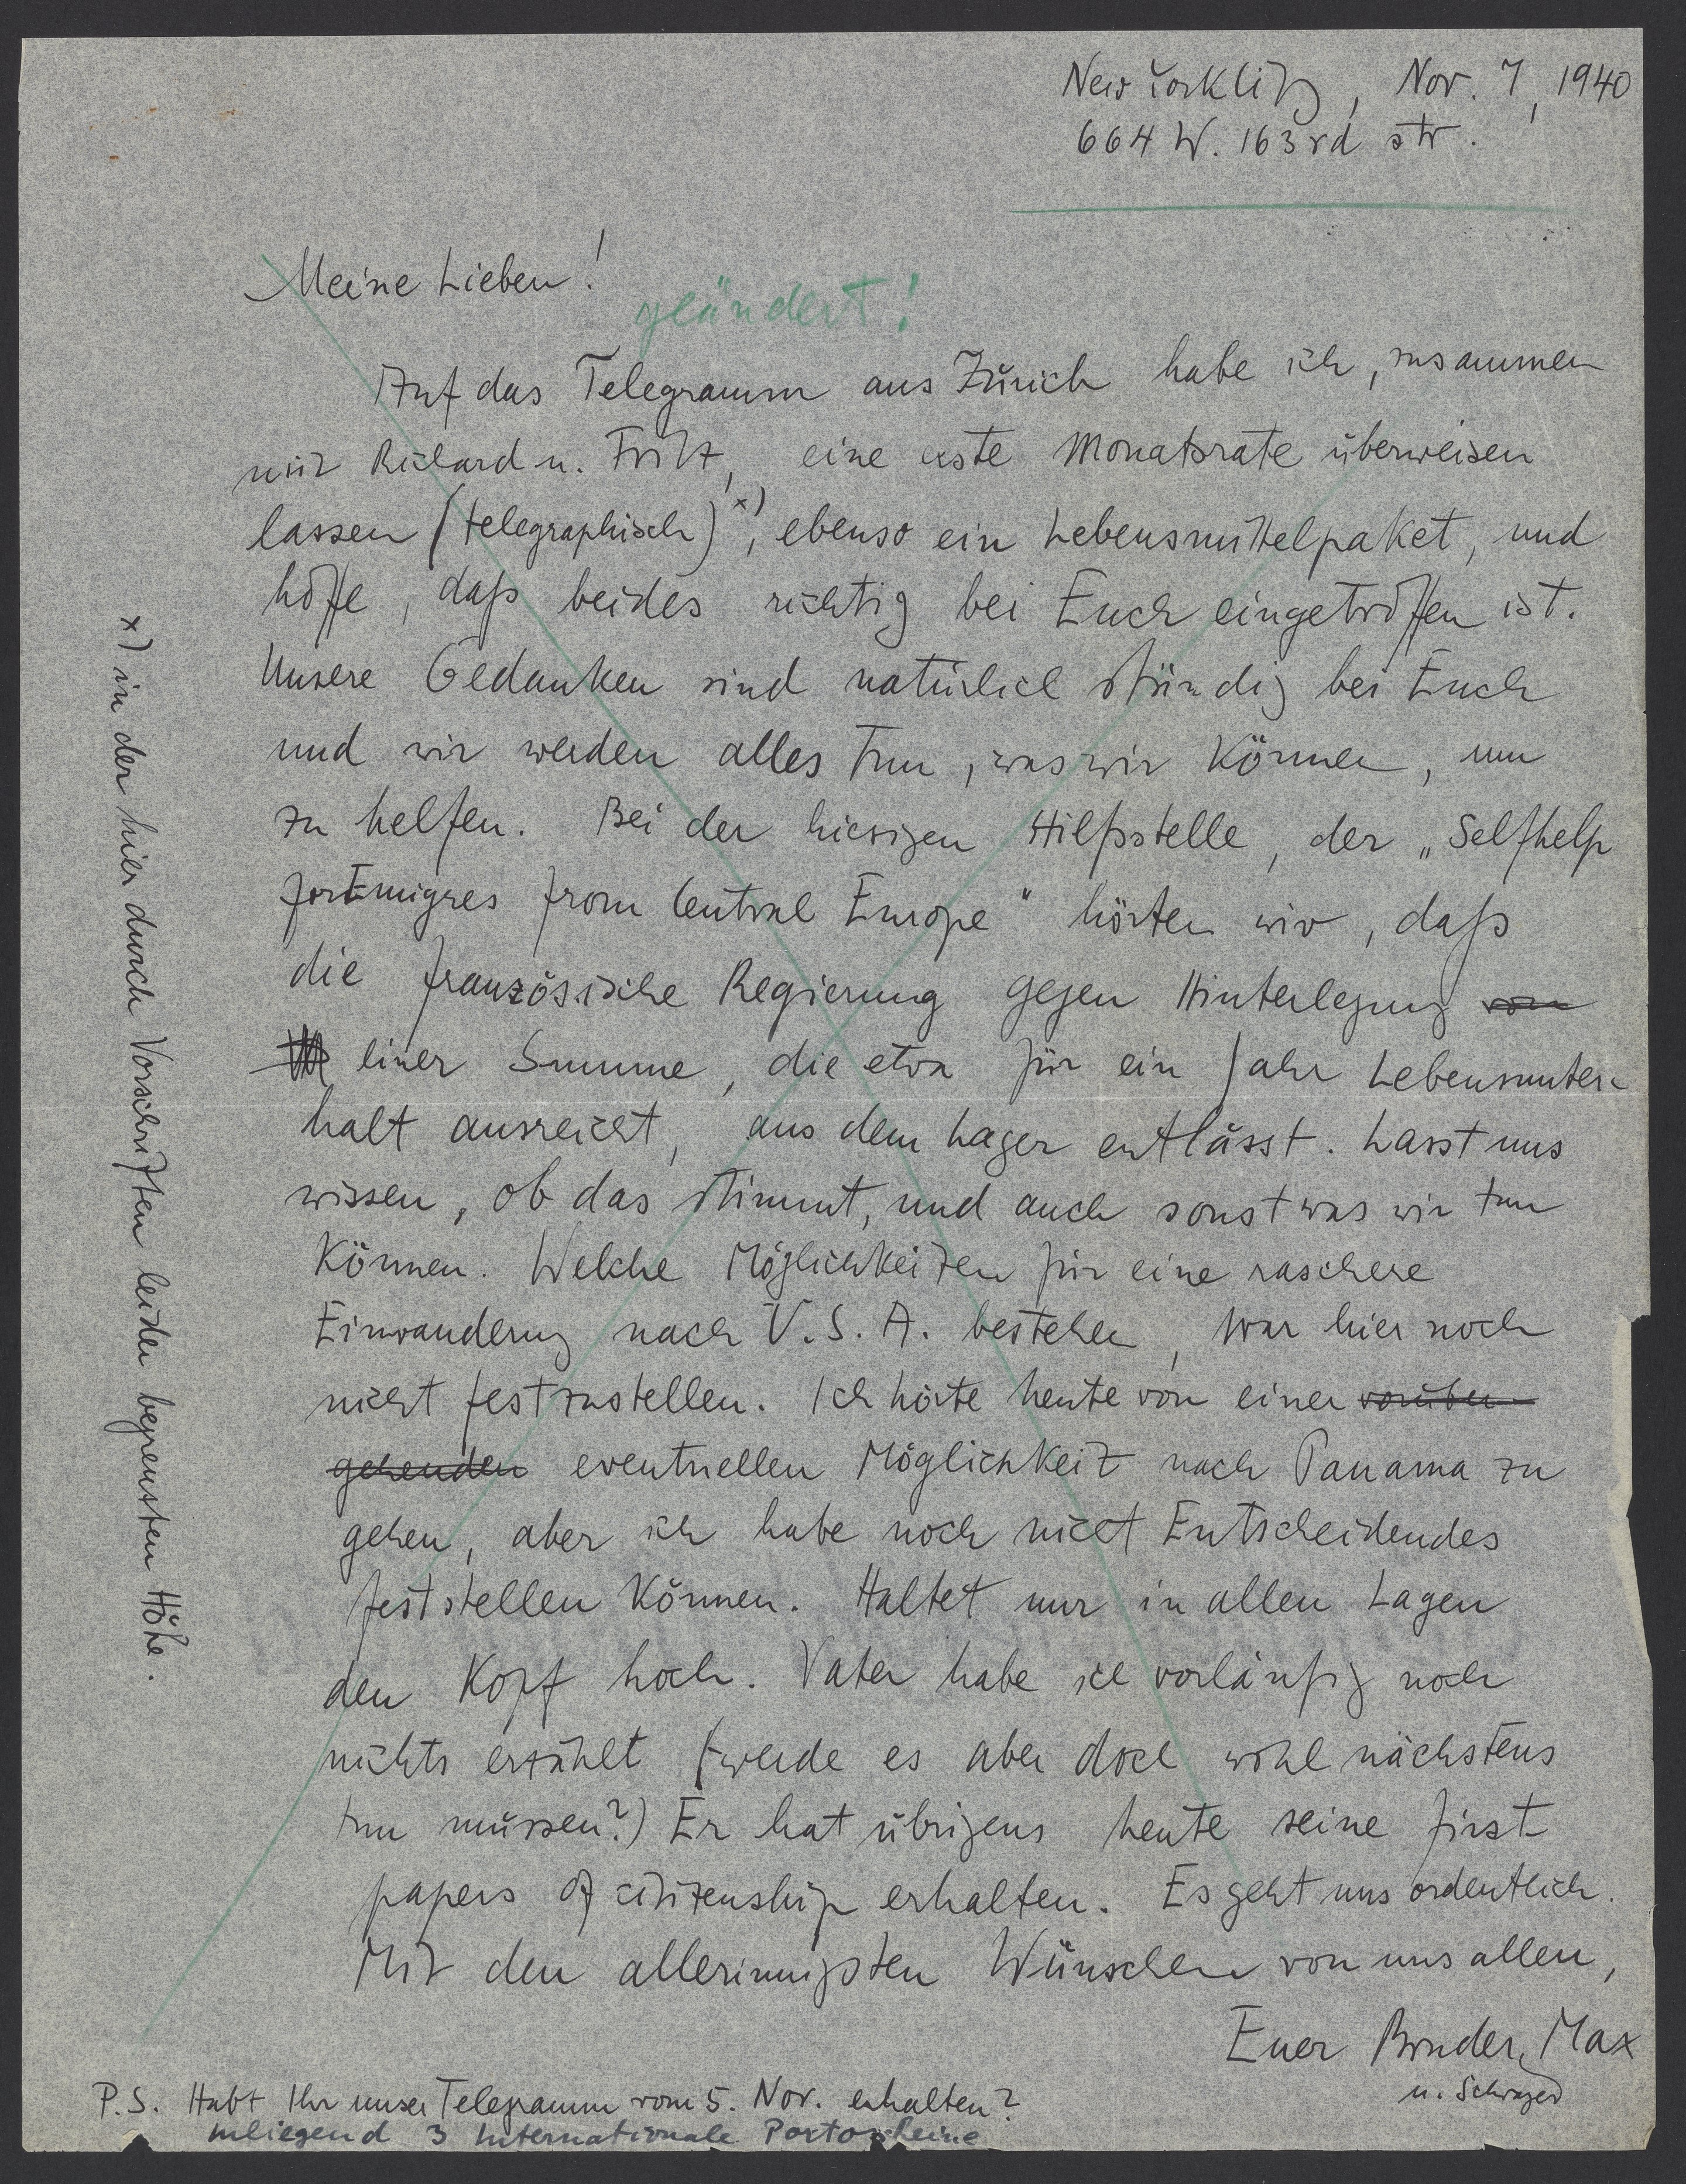 New York City, Nov. 7, 1940
664 W. 163rd str.
Meine Lieben!
geändert!
Auf das Telegramm aus Zürich habe ich, zusammen
mit Richard u. Fritz, eine erste Monatsrate überweisen
lassen (telegraphisch)x), ebenso ein Lebensmittelpaket, und
hoffe, daß beides richtig bei Euch eingetroffen ist.
Unsere Gedanken sind natürlich ständig bei Euch
und wir werden alles tun, was wir können, um
zu helfen. Bei der hiesigen Hilfsstelle, der „Selfhelp
for Emigres from Central Europe" hörten wir, daß
die französische Regierung gegen Hinterlegung von
einer Summe, die etwa für ein Jahr Lebensunter-
halt ausreicht, aus dem Lager entlässt. Lasst uns
wissen, ob das stimmt, und auch sonst was wir tun
können. Welche Möglichkeiten für eine raschere
Einwanderung nach U.S.A. bestehen, war hier noch
nicht festzustellen. Ich hörte heute von einer vorüber-
gehenden eventuellen Möglichkeit nach Panama zu
gehen, aber ich habe noch nicht Entscheidendes
feststellen können. Haltet nur in allen Lagen
den Kopf hoch. Vater habe ich vorläufig noch
nichts erzählt (werde es aber doch wohl nächstens
tun müssen?) Er hat übrigens heute seine first
papers of citizenship erhalten. Es geht uns ordentlich.
Mit den allerinnigsten Wünschen von uns allen,
Euer Bruder, Max
u. Schwager
P.S. Habt Ihr unser Telegramm vom 5. Nov. erhalten?
inliegend 3 Internationale Portoscheine
x) in der hier durch Vorschriften leider begrenzten Höhe.